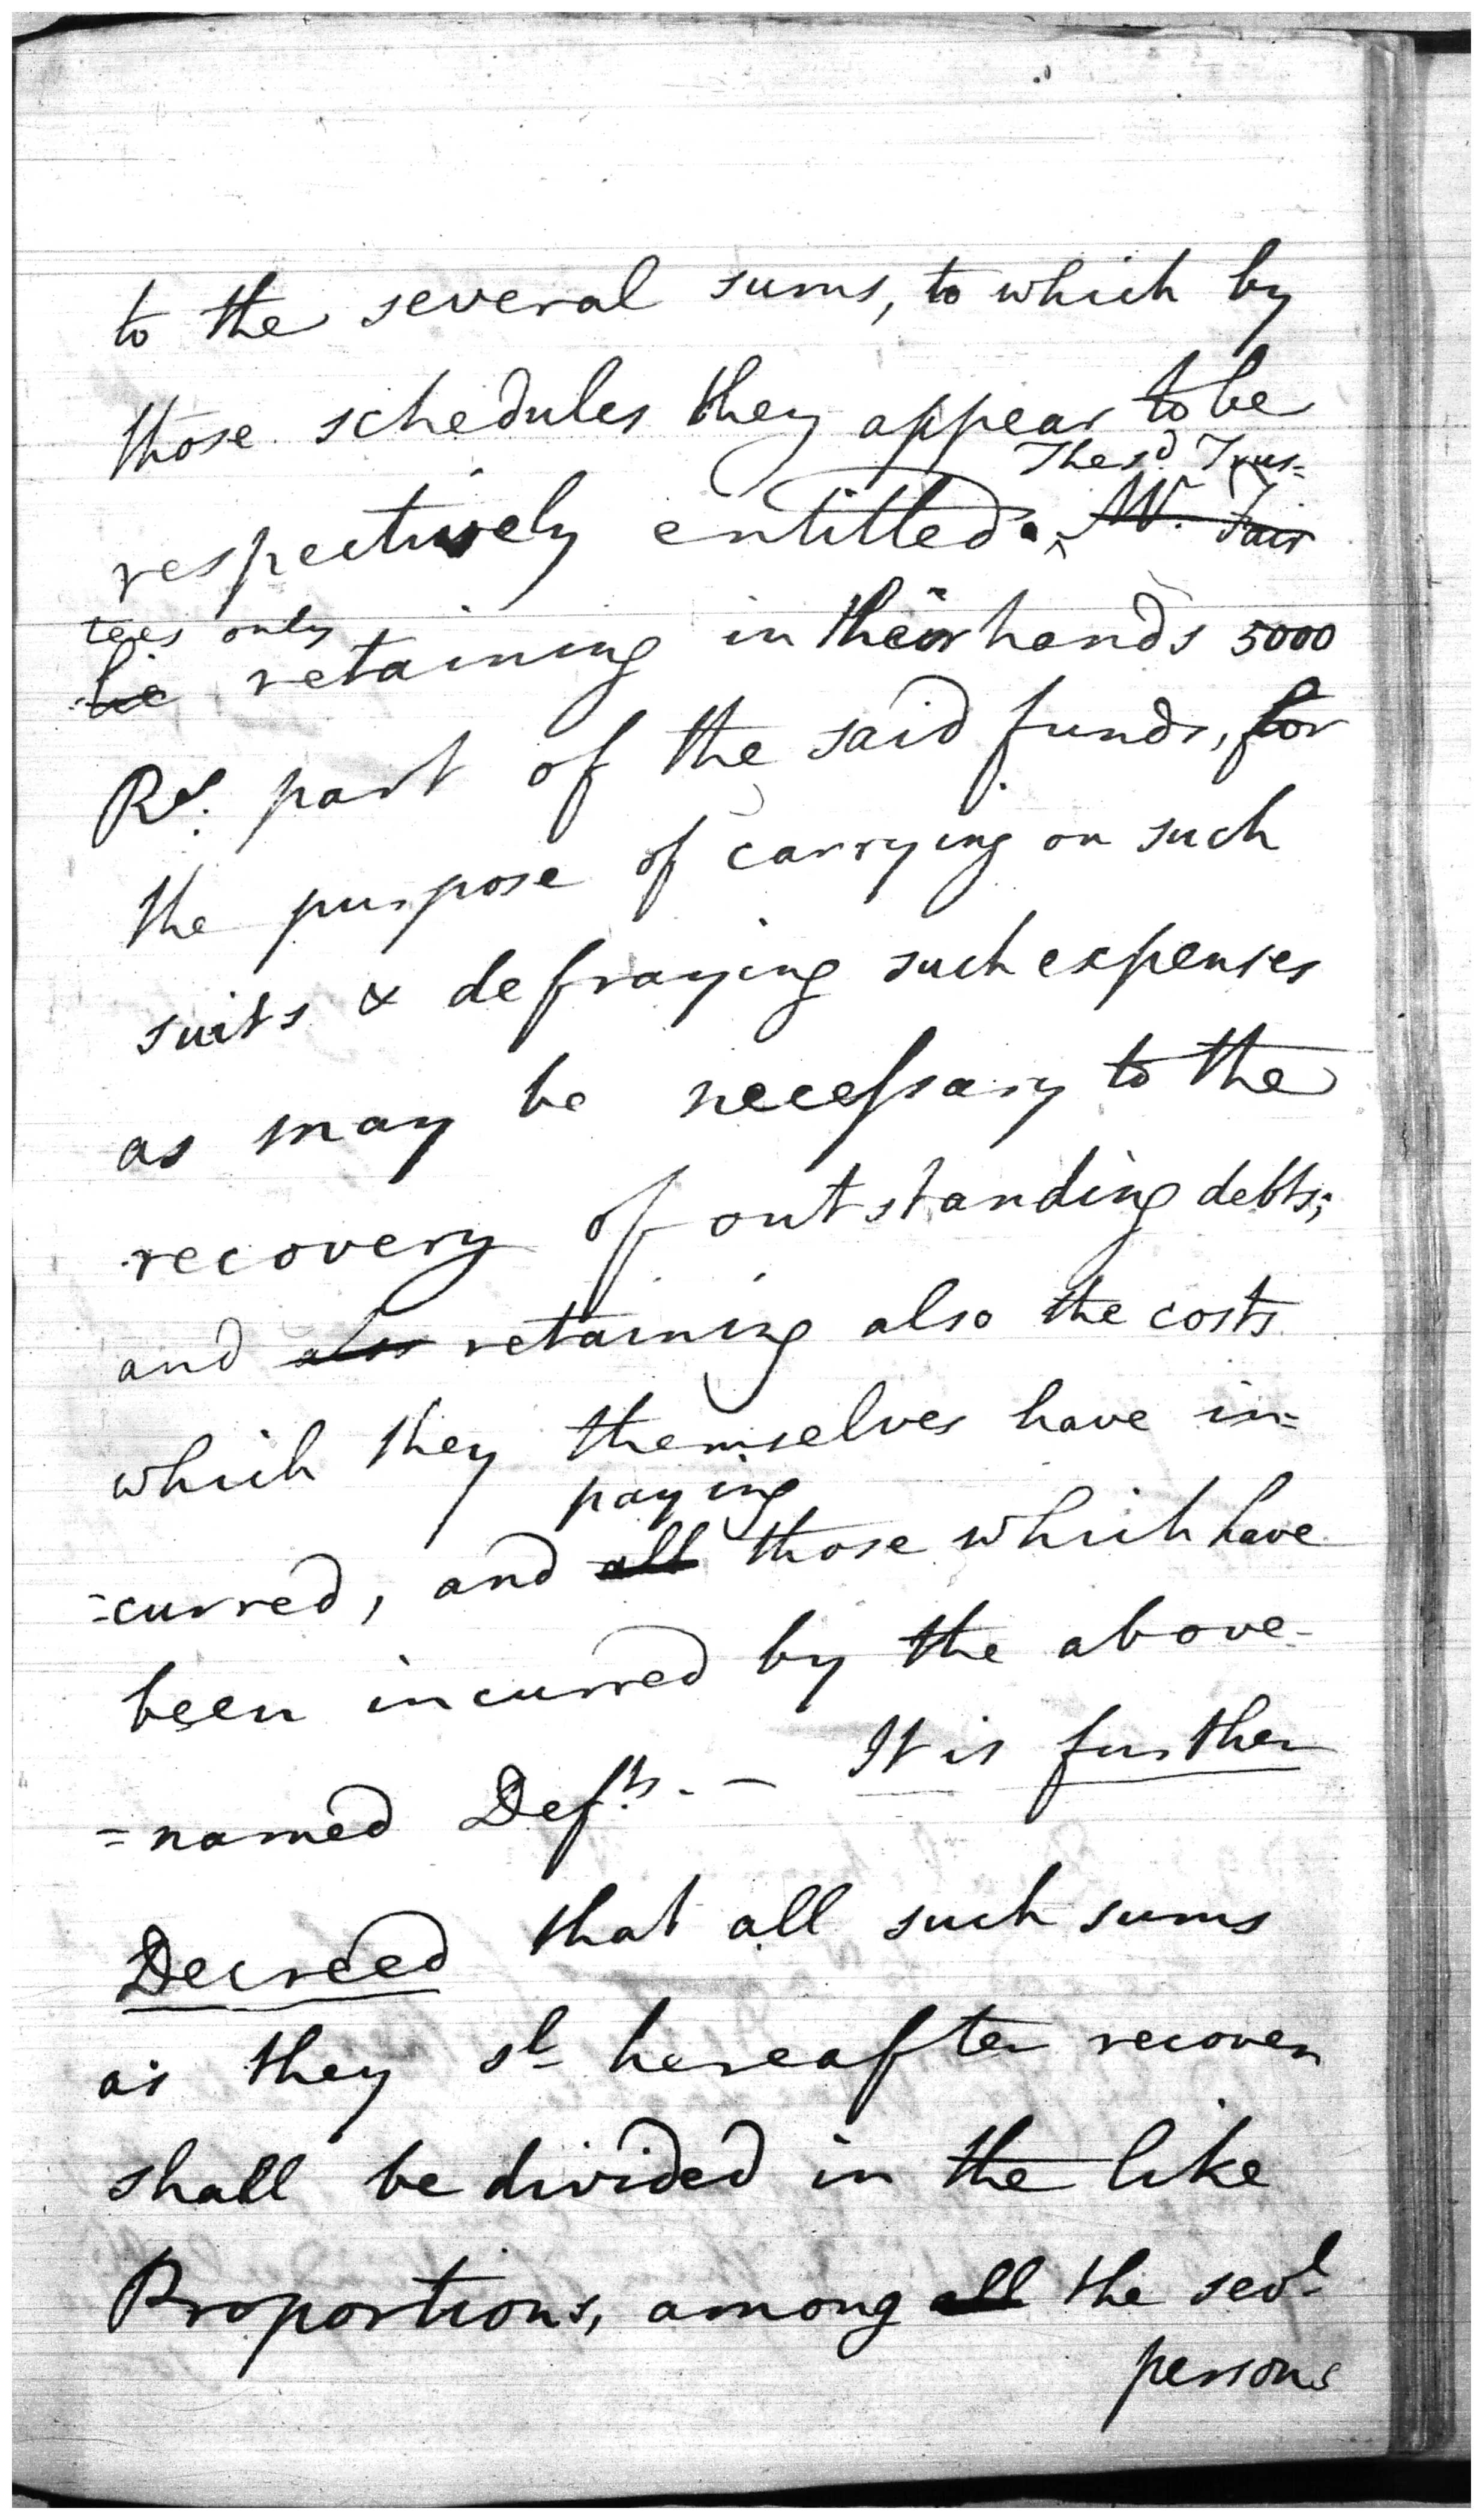 to the several sums, to which by
those schedules they appear to be
The sd. Trus=
respectively entitled. Mr. Fair
tees only
lie retaining in their hands 5000
Rs. part of the said funds, for
the purpose of carrying on such
suits & defraying such expenses
as may be necessary to the
recovery of outstanding debts;
and also retaining also the costs
which they themselves have in=
paying
=curred, and all those which have
been incurred by the above-
=named Defts. - It is further
Decreed that all such sums
as they sl hereafter recover
shall be divided in the like
Proportions, among all the sevl
persons